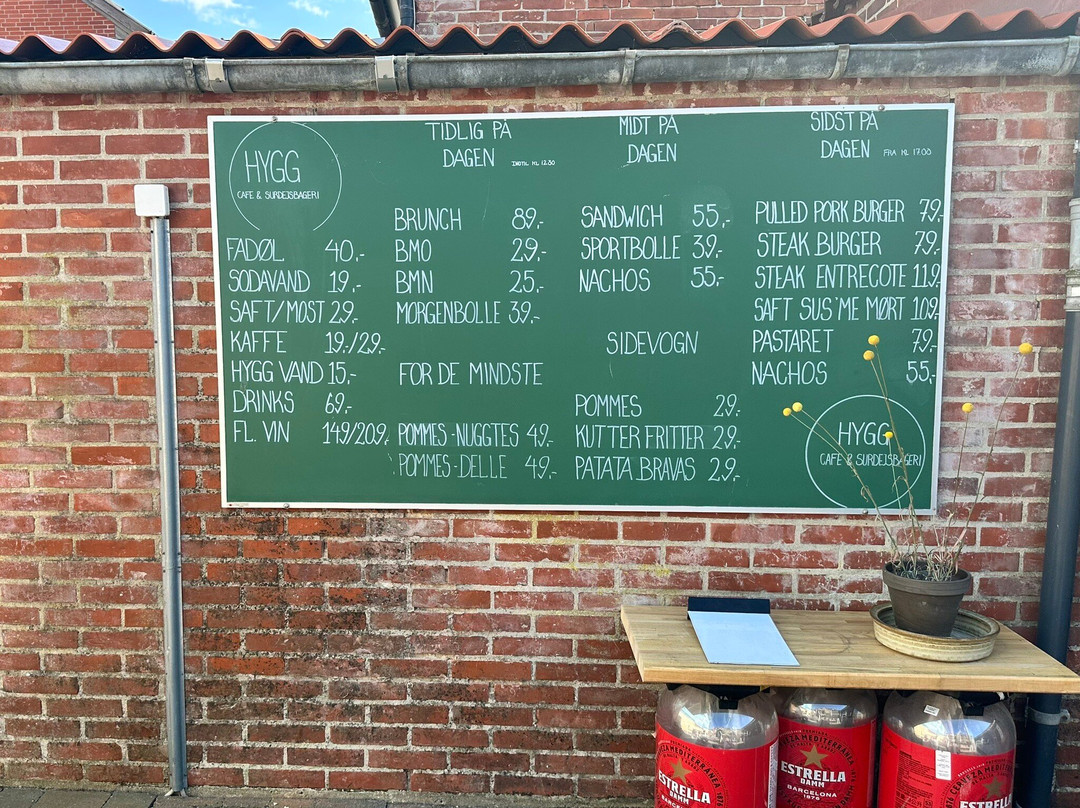 HYGG
CAFE & SURDEJSBAGERI
FADØL 40,-
SODAVAND 19,-
SAFT/MOST 29,-
KAFFE 19,-/29,-
HYGG VAND 15,-
DRINKS 69,-
FL. VIN 149/209,-
TIDLIG PÅ
DAGEN INDTIL KL 12.30
BRUNCH 89,-
BMO 29,-
BMN 25,-
MORGENBOLLE 39,-
FOR DE MINDSTE
POMMES-NUGGTES 49,-
POMMES-DELLE 49,-
MIDT PÅ
DAGEN
SANDWICH 55,-
SPORTBOLLE 39,-
NACHOS 55,-
SIDEVOGN
POMMES 29,-
KUTTER FRITTER 29,-
PATATA BRAVAS 29,-
SIDST PÅ
DAGEN FRA KL 17.00
PULLED PORK BURGER 79,-
STEAK BURGER 79,-
STEAK ENTRECOTE 119,-
SAFT SUS'ME MØRT 109,-
PASTARET 79,-
NACHOS 55,-
HYGG
CAFE & SURDEJSBAGERI
ESTRELLA
DAMM
BARCELONA
ESTRELLA
DAMM
BARCELONA
1876
ESTRELLA